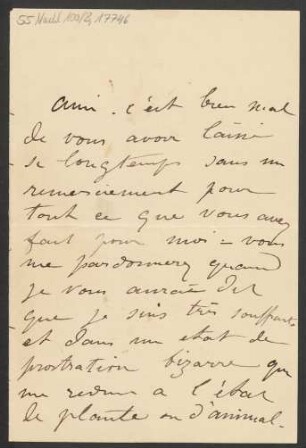 55 Nachl 100/2, 17746
Ami. c'est bien mal
de vous avoir laissé
si longtemps sans un
remerciement pour
tout ce que vous avez
fait pour moi = vous
me pardonnerez quand
je vous aurai dit
que je suis très souffrante
et dans un état de
prostration bizarre qui
me réduit à l'état
de plante ou d'animal.